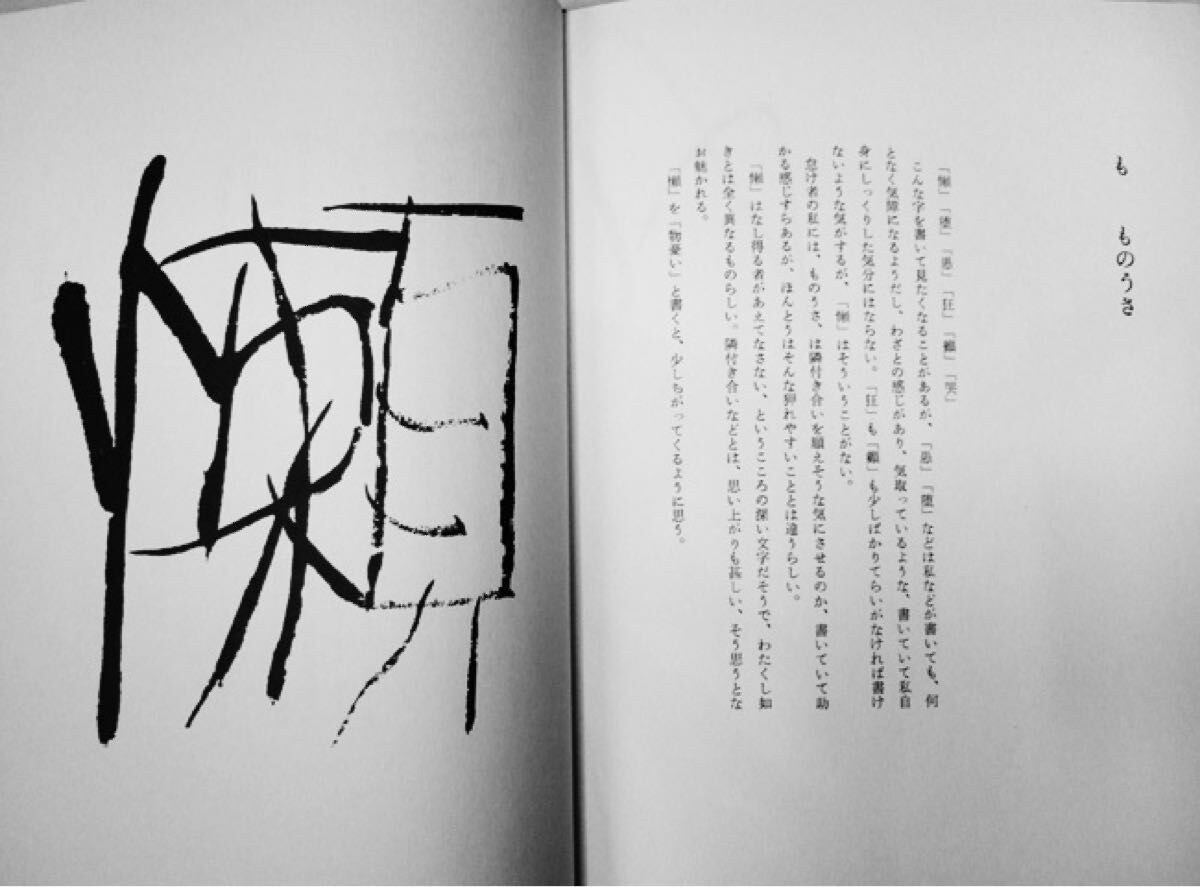 も　ものうさ
「懶」「堕」「愚」「狂」「癲」「哭」
こんな字を書いて見たくなることがあるが、「愚」「堕」などは私などが書いても、何
となく気障になるようだし、わざとの感じがあり、気取っているような、書いていて私自
身にしっくりした気分にはならない。「狂」も「癲」も少しばかりてらいがなければ書け
ないような気がするが、「懶」はそういうことがない。
怠け者の私には、ものうさ、は隣付き合いを願えそうな気にさせるのか、書いていて助
かる感じすらあるが、ほんとうはそんな狎れやすいこととは違うらしい。
「懶」はなし得る者があえてなさない、というこころの深い文字だそうで、わたくし如
きとは全く異なるものらしい。隣付き合いなどとは、思い上がりも甚しい、そう思うとな
お魅かれる。
「懶」を「物憂い」と書くと、少しちがってくるように思う。
懶